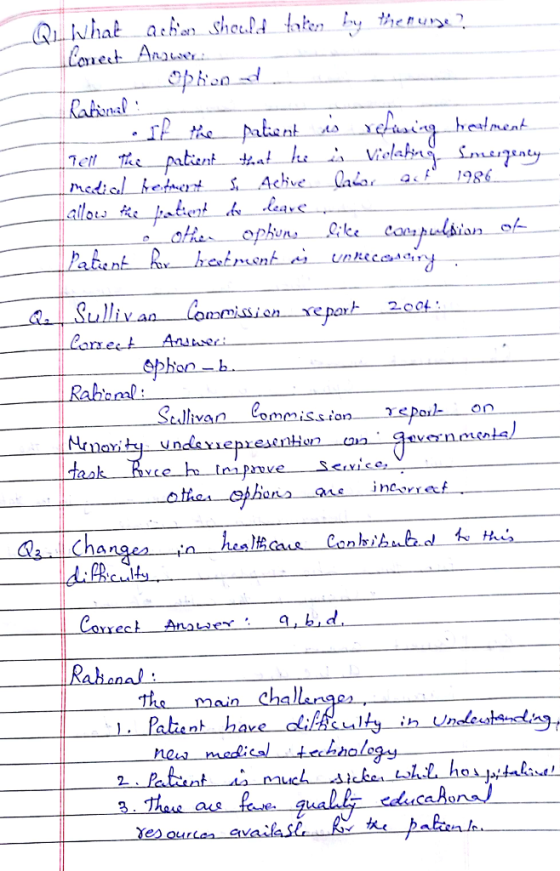 Q1. What action should taken by the nurse?
Correct Answer:
Option - d
Rational:
• If the patient is refusing treatment
Tell the patient that he is Violating Emergency
medical tretment & Active labor act 1986
allow the patient to leave.
• Other options like compulsion of
Patient for treetment is unnecessary.
Q2. Sullivan Commission report 2004:
Correct Answer:
Option - b.
Rational:
Sullivan Commission report on
Minority underrepresention on governmental
task force to improve service.
Other options are incorrect.
Q3. Changes in healthcare Contributed to this
difficulty.
Correct Answer: a, b, d.
Rational:
The main Challenges,
1. Patient have difficulty in Understanding,
new medical technology
2. Patient is much sicker while
3. There are fewer quality educational
resources available for the patients.